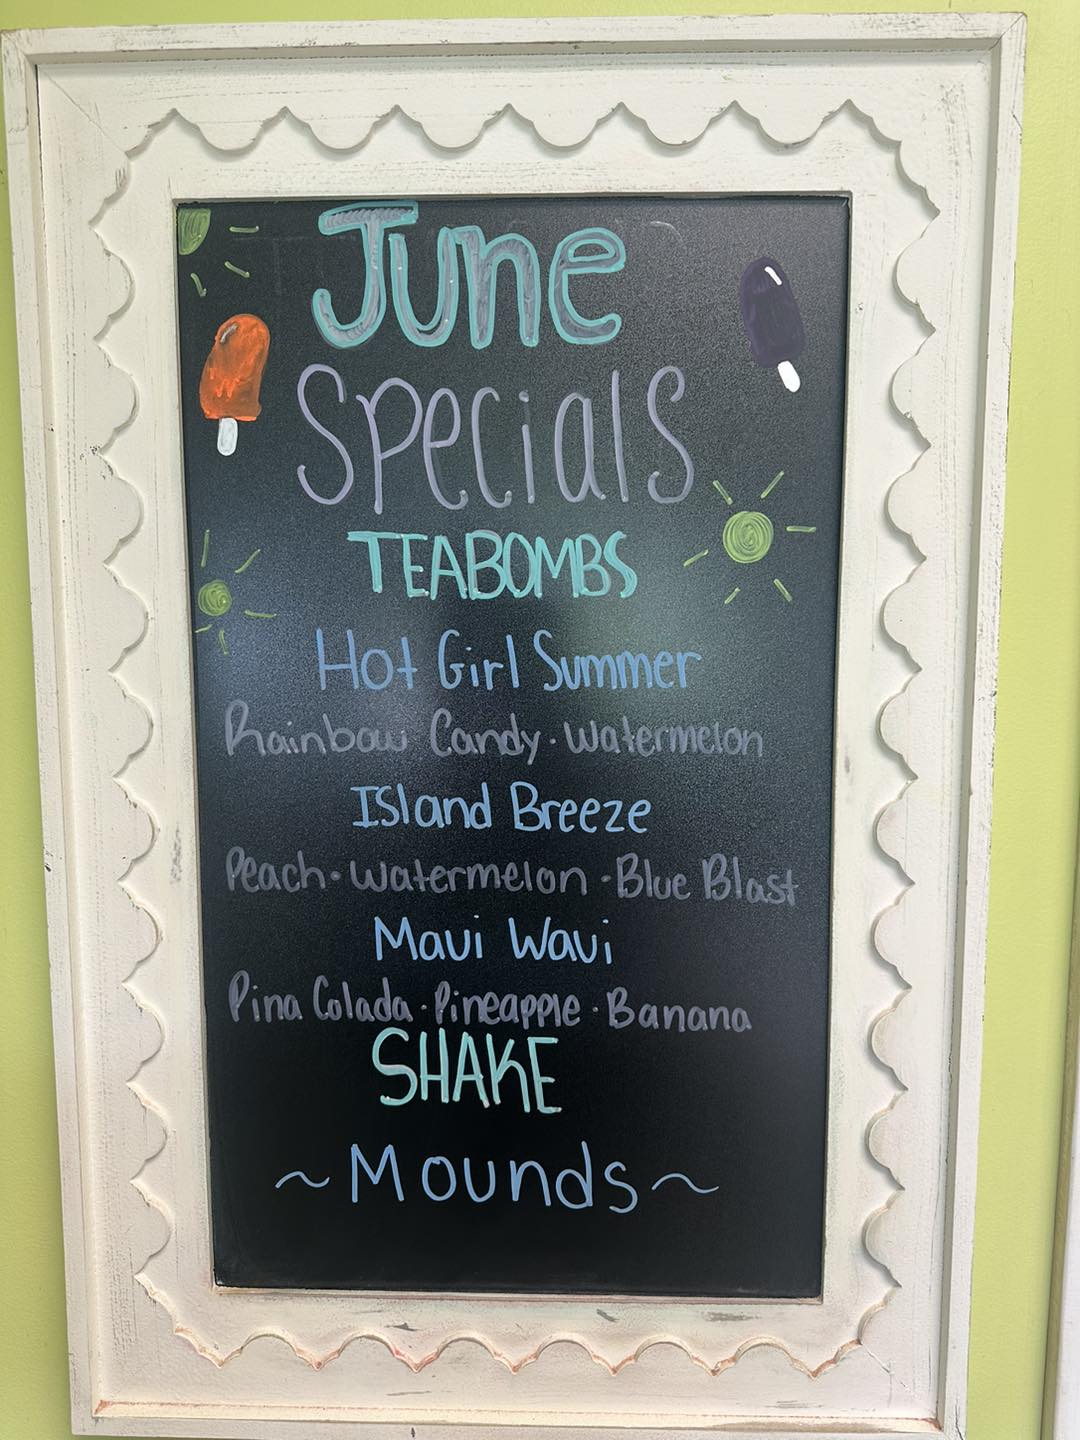 June
Specials
TEABOMBS
Hot Girl Summer
Rainbow Candy · Watermelon
Island Breeze
Peach · Watermelon · Blue Blast
Maui Waui
Pina Colada · Pineapple · Banana
SHAKE
~Mounds~